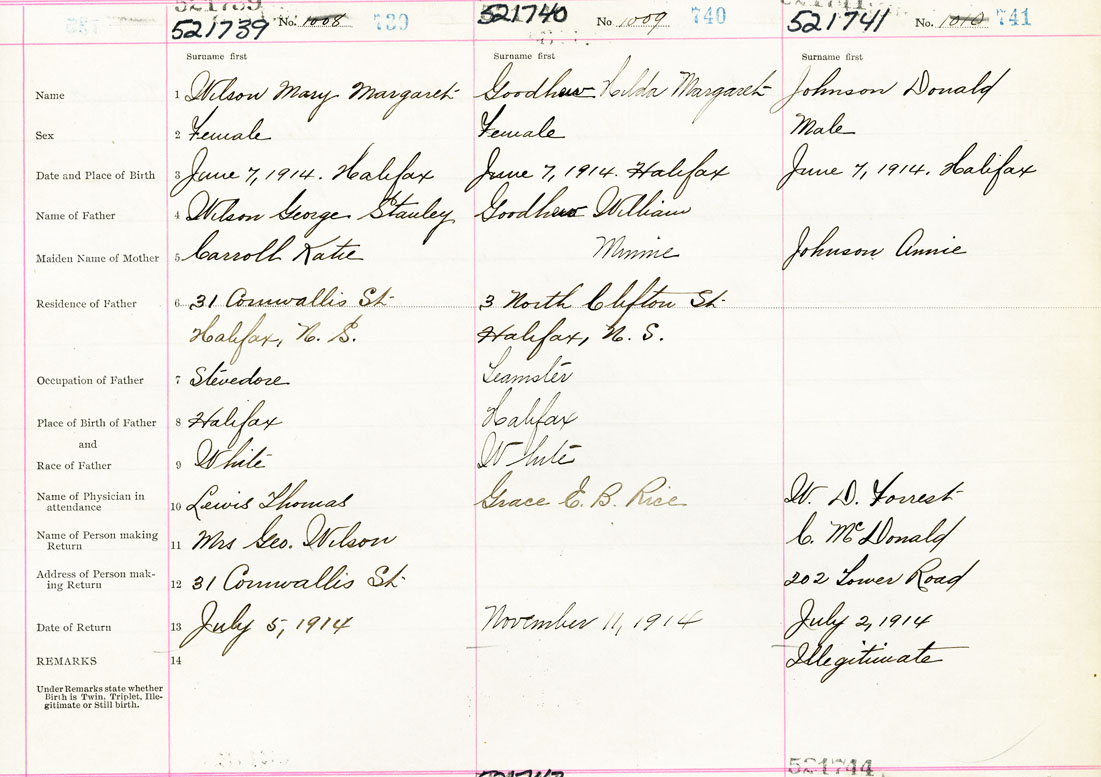 521739 No. 1008 739
521740 No 1009 740
521741 No. 1010 741
Surname first Surname first Surname first
Name 1 Wilson Mary Margaret Goodhew Hilda Margaret Johnson Donald
Sex 2 Female Female Male
Date and Place of Birth 3 June 7, 1914. Halifax June 7, 1914. Halifax June 7, 1914. Halifax
Name of Father 4 Wilson George Stanley Goodhew William
Maiden Name of Mother 5 Carroll Katie Minnie Johnson Annie
Residence of Father 6 31 Cornwallis St. 3 North Clifton St.
Halifax, N. S. Halifax, N. S.
Occupation of Father 7 Stevedore Teamster
Place of Birth of Father 8 Halifax Halifax
and
Race of Father 9 White White
Name of Physician in
attendance 10 Lewis Thomas Grace E. B. Rice W. D. Forrest
Name of Person making
Return 11 Mrs Geo. Wilson C. McDonald
Address of Person mak-
ing Return 12 31 Cornwallis St. 202 Tower Road
Date of Return 13 July 5, 1914 November 11, 1914 July 2, 1914
REMARKS 14 Illegitimate
Under Remarks state whether
Birth is Twin, Triplet, Ille-
gitimate or Still birth.
521744